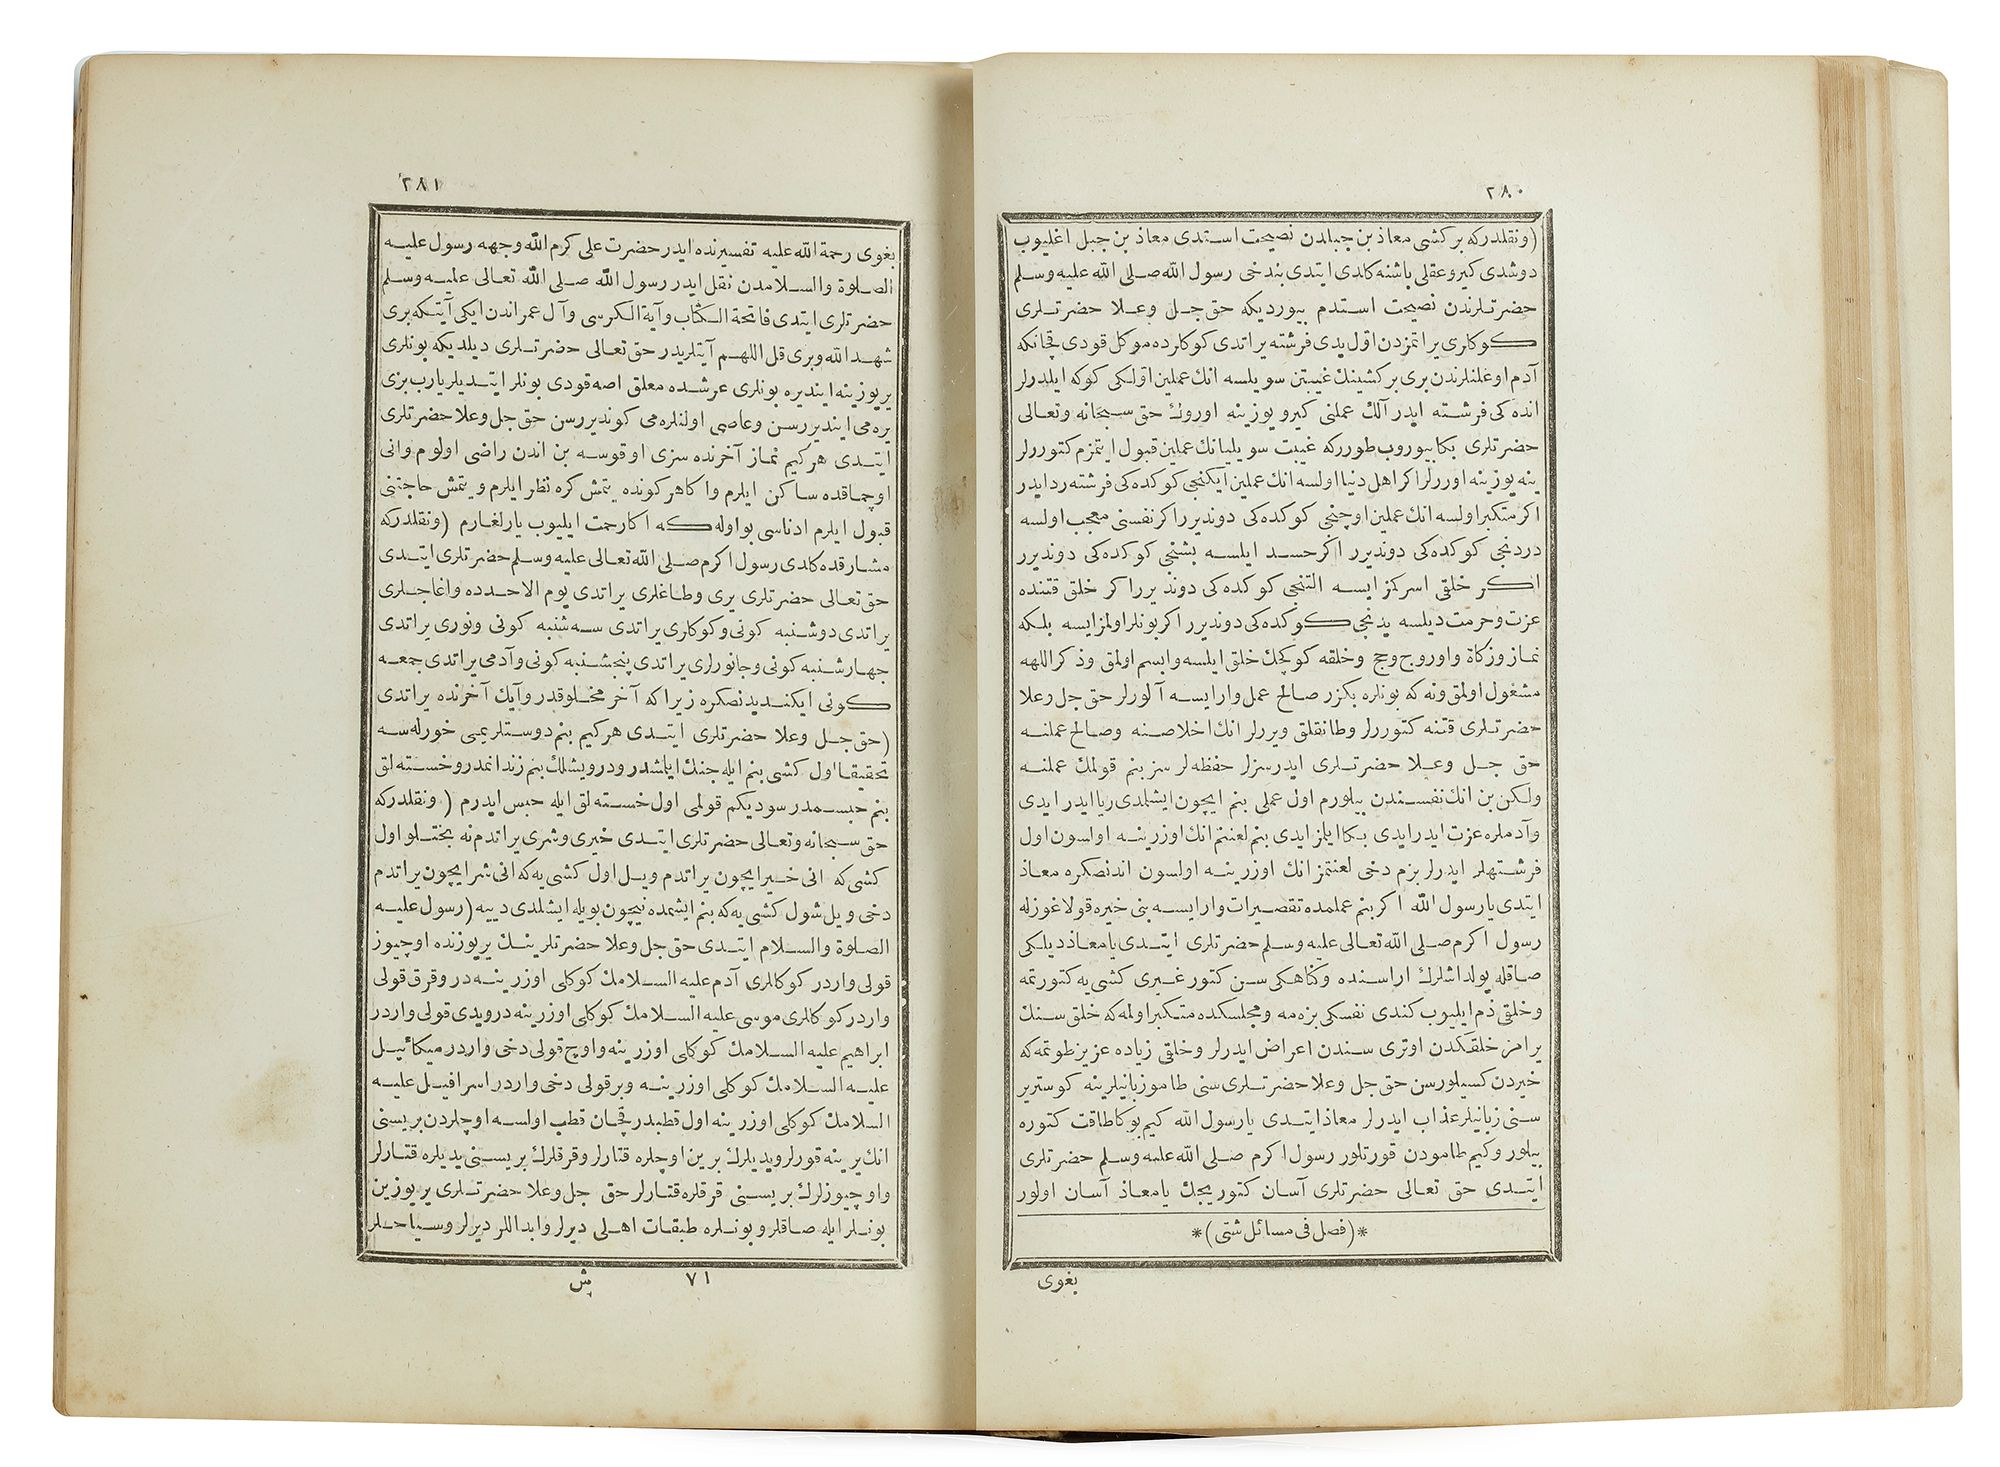 ٢٨٠
(ونقلدركه بر كشى معاذ بن جبلدن نصيحت استدى معاذ بن جبل اغليوب
دوشدى كيرو عقلى باشنه كلدى ايتدى بندخى رسول الله صلى الله عليه وسلم
حضرتلرندن نصيحت استدم بيورديكه حق جل وعلا حضرتلرى
كوكلرى يراتمزدن اول يدى فرشته يراتدى كوكلرده موكل قودى قچانكه
آدم اوغلنلرندن برى بر كشينك غيبتن سويلسه انك عملين اولكى كوكه ايلدرلر
انده كى فرشته ايدر آلك عملنى كيرو يوزينه اورك حق سبحانه وتعالى
حضرتلرى بكا بيوروب طورركه غيبت سويليانك عملين قبول ايتمزم كتوررلر
ينه يوزينه اوررلر اكر اهل دنيا اولسه انك عملين ايكنجى كوكده كى فرشته رد ايدر
اكر متكبر اولسه انك عملين اوچنجى كوكده كى دوندير راكر نفسنى معجب اولسه
دردنجى كوكده كى دوندير ر اكر حسد ايلسه بشنجى كوكده كى دوندير ر
اكر خلقى اسركمز ايسه التنجى كوكده كى دوندير ر اكر خلق قتنده
عزت وحرمت ديلسه يدنجى كوكده كى دوندير ر اكر بونلر اولمز ايسه بلكه
نماز وزكاة واوروج وحج وخلقه كوكچك خلق ايلسه وابسم اولمق وذكر اللهه
مشغول اولمق ونه كه بونلره بكزر صالح عمل وار ايسه آلورلر حق جل وعلا
حضرتلرى قتنه كتوررلر وطانقلق ويررلر انك اخلاصنه وصالح عملنه
حق جل وعلا حضرتلرى ايدر سزلر حفظه لر سز بنم قولمك عملنه
ولكن بن انك نفسندن بيلورم اول عملى بنم ايچون ايشلمدى ريا ايدر ايدى
وآدملره عزت ايدر ايدى بكا ايلمز ايدى بنم لعنتم انك اوزرينه اولسون اول
فرشتهلر ايدرلر بزم دخى لعنتمز انك اوزرينه اولسون اندنصكره معاذ
ايتدى يا رسول الله اكر بنم عملمده تقصيرات وار ايسه بنى خيره قولاغوزله
رسول اكرم صلى الله تعالى عليه وسلم حضرتلرى ايتدى يا معاذ ديلكى
صاقله يولداشلرك اراسنده وكناهكى سن كتور غيرى كشى يه كتورتمه
وخلقى ذم ايليوب كندى نفسكى بزه مه ومجلسكده متكبر اولمه كه خلق سنك
يرامز خلقكدن اوترى سندن اعراض ايدرلر وخلقى زياده عزيز طوتمه كه
خيردن كسيلورسن حق جل وعلا حضرتلرى سنى طامو زبانيلرينه كوستر ير
سنى زبانيلر عذاب ايدرلر معاذ ايتدى يا رسول الله كيم بوكا طاقت كتوره
بيلور وكيم طامودن قورتلور رسول اكرم صلى الله عليه وسلم حضرتلرى
ايتدى حق تعالى حضرتلرى آسان كتوريجك يا معاذ آسان اولور
*(فصل فى مسائل شتى)*
بغوى
٢٨١
بغوى رحمة الله عليه تفسيرنده ايدر حضرت على كرم الله وجهه رسول عليه
الصلوة والسلامدن نقل ايدر رسول الله صلى الله تعالى عليه وسلم
حضرتلرى ايتدى فاتحة الكتاب وآية الكرسى وآل عمراندن ايكى آيتكه برى
شهد الله وبرى قل اللهم آيتلريدر حق تعالى حضرتلرى ديلديكه بونلرى
ير يوزينه اينديره بونلرى عرشده معلق اصه قودى بونلر ايتديلر يارب بزى
يره مى اينديررسن وعاصى اولنلره مى كونديررسن حق جل وعلا حضرتلرى
ايتدى هركيم نماز آخرنده سزى اوقوسه بن اندن راضى اولوم وانى
اوچماقده ساكن ايلرم واكا هر كونده يتمش كره نظر ايلرم ويتمش حاجتنى
قبول ايلرم ادناسى بو اوله كه اكا رحمت ايليوب يارلغارم (ونقلدركه
مشارقده كلدى رسول اكرم صلى الله تعالى عليه وسلم حضرتلرى ايتدى
حق تعالى حضرتلرى يرى وطاغلرى يراتدى يوم الاحدده واغاجلرى
يراتدى دوشنبه كونى وكوكلرى يراتدى سه شنبه كونى ونورى يراتدى
جهارشنبه كونى وجانورلرى يراتدى پنجشنبه كونى وآدمى يراتدى جمعه
كونى ايكنديدنصكره زيراكه آخر مخلوقدر وآيك آخرنده يراتدى
(حق جل وعلا حضرتلرى ايتدى هركيم بنم دوستلريمى خورله سه
تحقيقا اول كشى بنم ايله جنك ايلمشدر ودرويشلك بنم زندانمدر وخسته لق
بنم حبسمدر سوديكم قولمى اول خسته لق ايله حبس ايدرم (ونقلدركه
حق سبحانه وتعالى حضرتلرى ايتدى خيرى وشرى يراتدم نه بختلو اول
كشى كه انى خير ايچون يراتدم وويل اول كشى يه كه انى شر ايچون يراتدم
دخى ويل شول كشى يه كه بنم ايشمده نيچون بويله ايشلدى دييه (رسول عليه
الصلوة والسلام ايتدى حق جل وعلا حضرتلرينك ير يوزنده اوچيوز
قولى واردر كوكللرى آدم عليه السلامك كوكلى اوزرينه در وقرق قولى
واردر كوكللرى موسى عليه السلامك كوكلى اوزرينه در ويدى قولى واردر
ابراهيم عليه السلامك كوكلى اوزرينه واوچ قولى دخى واردر ميكائيل
عليه السلامك كوكلى اوزرينه وبر قولى دخى واردر اسرافيل عليه
السلامك كوكلى اوزرينه اول قطبدر قچان قطب اولسه اوچلردن بريسنى
انك يرينه قورلر ويديلرك برين اوچلره قتارلر وقرقلرك بريسنى يديلره قتارلر
واوچيوزلرك بريسنى قرقلره قتارلر حق جل وعلا حضرتلرى ير يوزين
بونلر ايله صاقلر وبونلره طبقات اهلى ديرلر وابداللر ديرلر وسياحلر
٧١